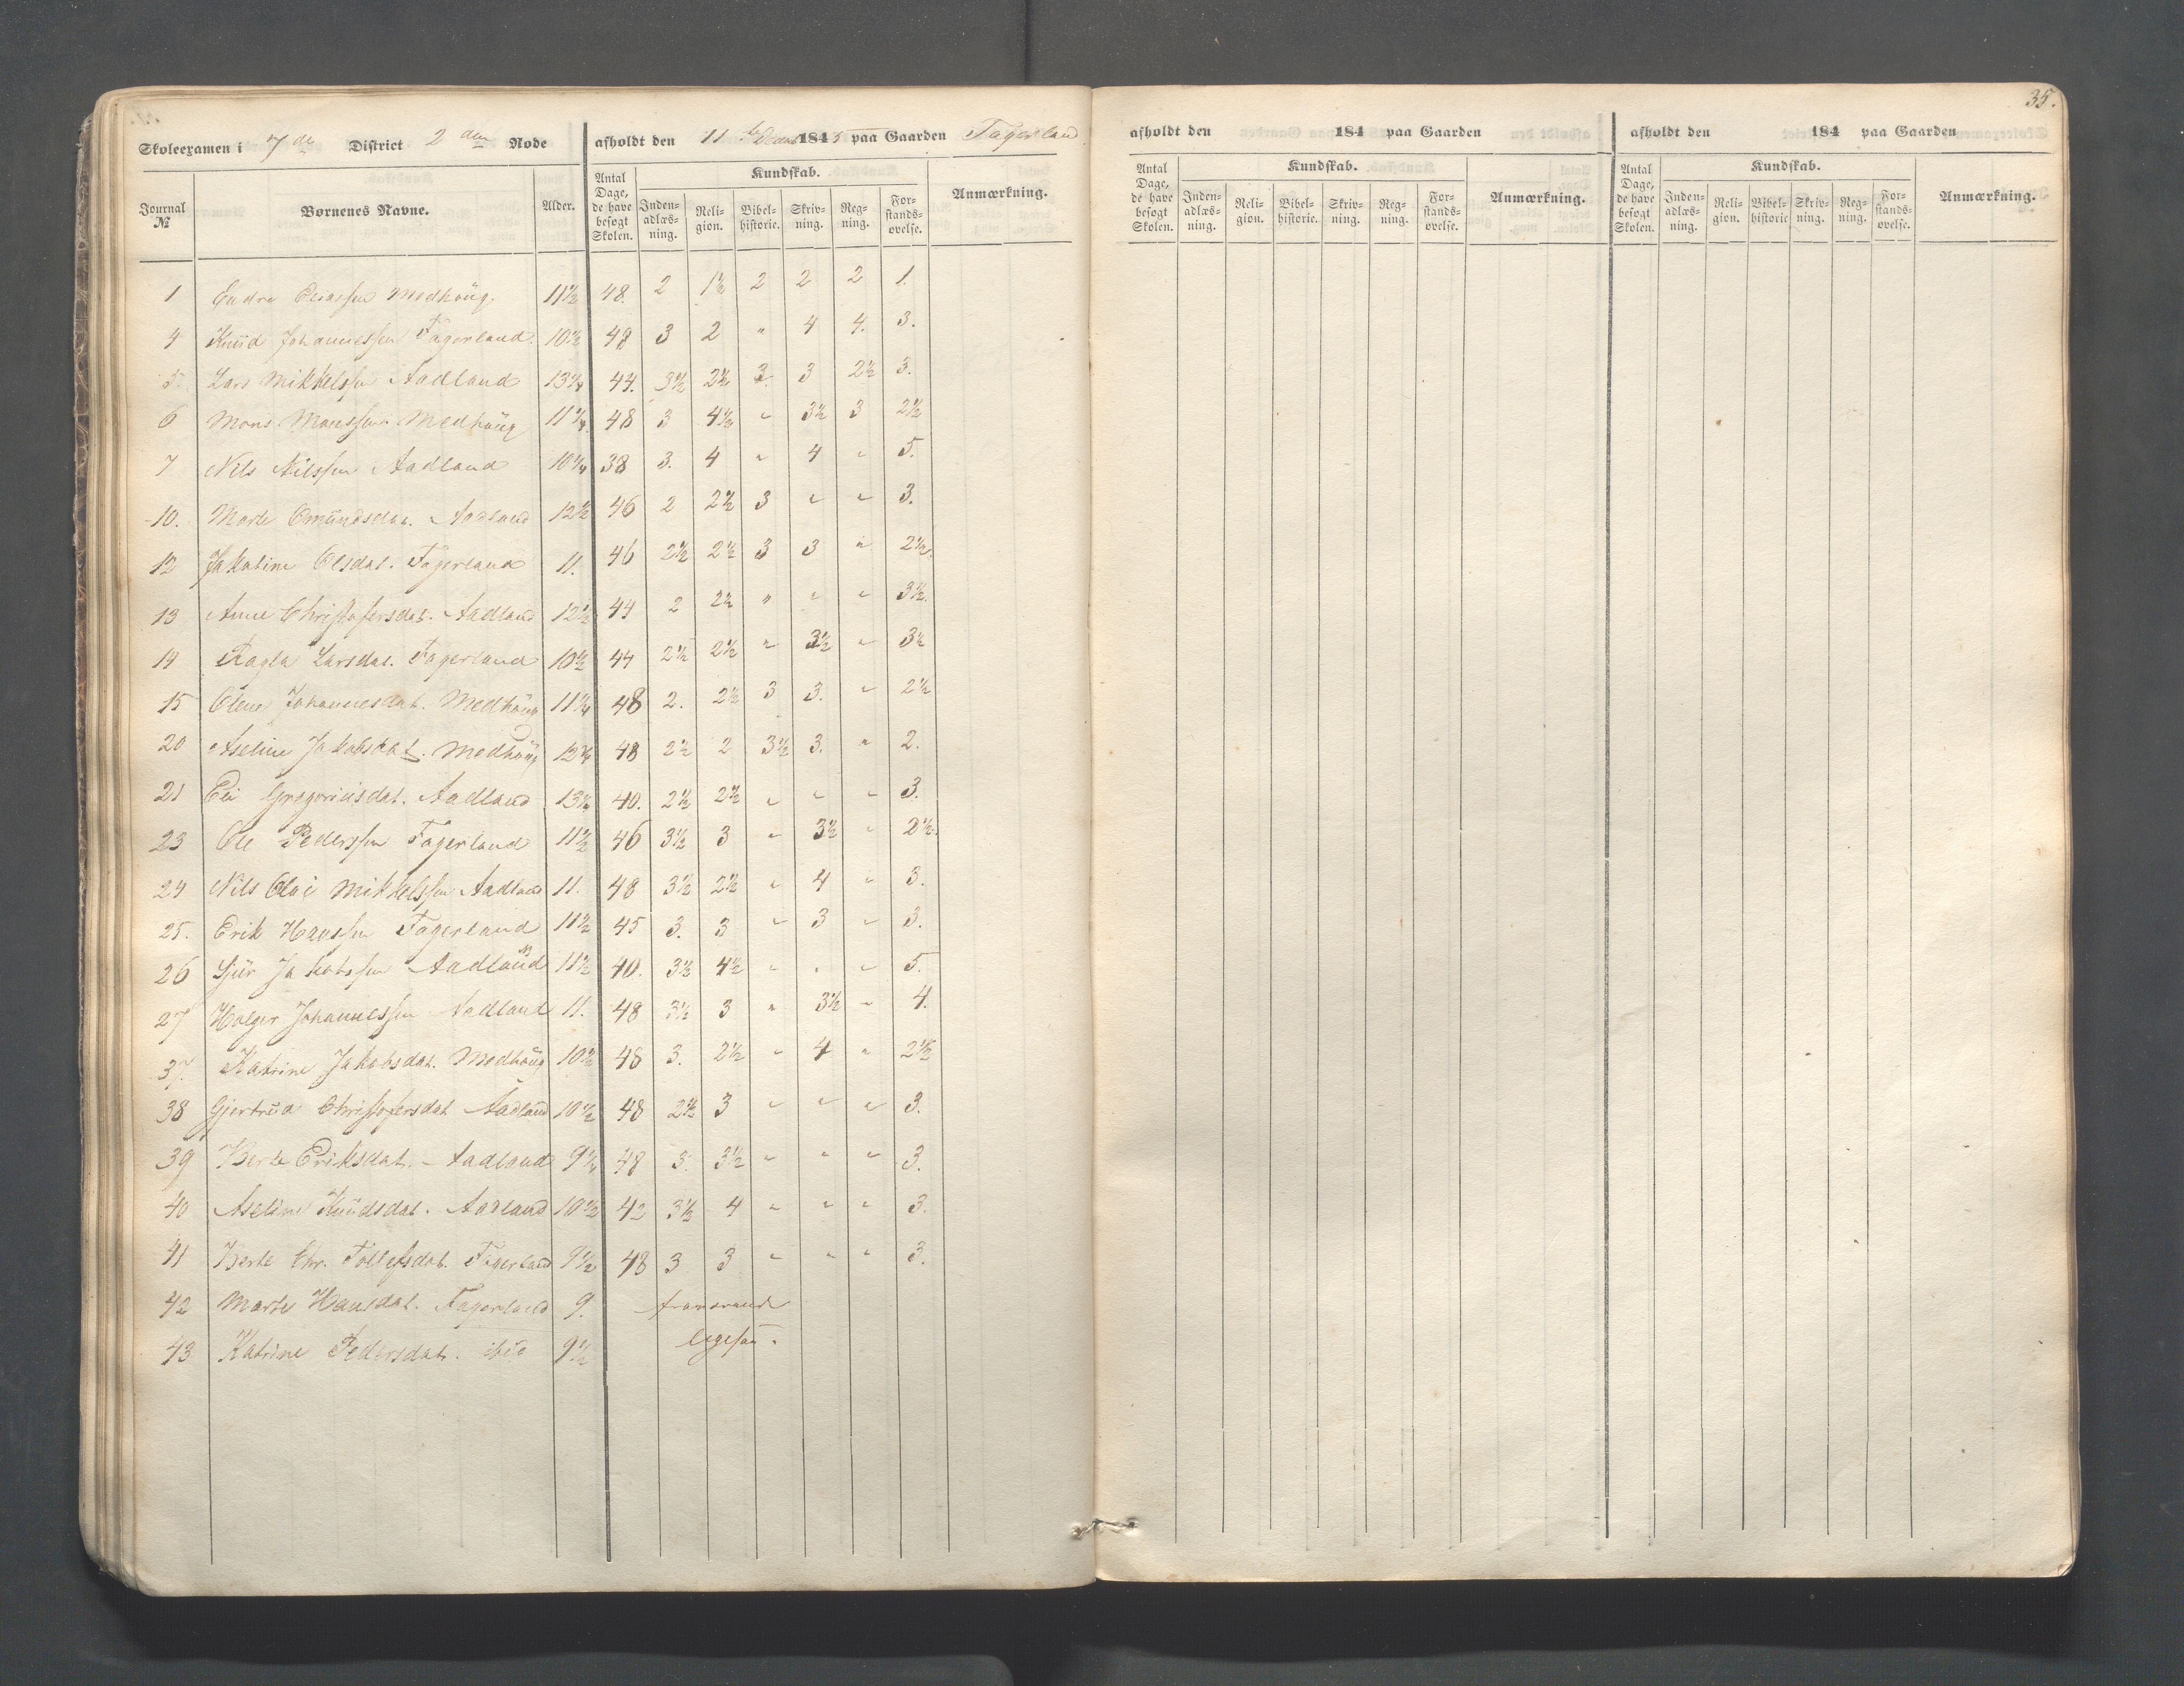 35.
Skoleexamen i 7de District 2den Rode afholdt den 11te Decbr 1845 paa Gaarden Fagerland
Journal № Børnenes Navne. Alder. Antal Dage, de have besøgt Skolen. Kundskab. Indenadlæsning. Religion. Bibelhistorie. Skrivning. Regning. Forstandsøvelse. Anmærkning.
1 Endre Eliassen Medhoüg. 11½ 48. 2 1½ 2 2 2 1.
4 Knüd Johannessen Fagerland. 10½ 48 3 2 " 4 4. 3.
5. Lars Mikkelssen Aadland 13¼ 44. 3½ 2½ 3. 3 2½ 3.
6 Mons Monssen Medhoüg 11¼ 48 3 4½ " 3½ 3 2½
7 Nils Nilssen Aadland 10¼ 38 3. 4 " 4 " 5.
10. Marte Omündsdat. Aadland 12½ 46 2 2½ 3 " " 3.
12 Jakobine Olsdat. Fagerland 11. 46 2½ 2½ 3 3 " 2½.
13 Anne Christofersdat. Aadland 12½ 44 2 2½ " " " 3½.
14 Ragla Larsdat. Fagerland 10½ 44 2½ 2½ " 3½ " 3½
15 Olene Johannesdat. Medhoüg 11¼ 48 2. 2½ 3 3. " 2½
20 Aseline Jakobsdat. Medhoüg 12¼ 48 2½ 2 3½ 3. " 2.
21 Eli Gregoriüsdat. Aadland 13½ 40. 2½ 2½ " " " 3.
23 Ole Pederssen Fagerland 11½ 46 3½ 3 " 3½ " 2½.
24 Nils Olai Mikkelssen Aadland 11. 48 3½ 2½ " 4 " 3.
25. Erik Hanssen Fagerland 11½ 45 3. 3 " 3 " 3.
26 Sjür Jakobssen Aadland 11½ 40. 3½ 4½ " " " 5.
27 Holger Johannessen Aadland 11. 48 3½ 3 " 3½ " 4.
37. Katrine Jakobsdat. Medhoüg 10½ 48 3. 2½ " 4 " 2½
38 Gjertrüd Christofersdat Aadland 10½ 48 2½ 3 " " " 3.
39 Berte Eriksdat. Aadland 9½ 48 3. 3½ " " " 3.
40 Aseline Knüdsdat. Aadland 10½ 42 3½ 4 " " " 3.
41 Berte Chr. Tollefsdat. Fagerland 9½ 48 3 3 " " " 3.
42 Marte Hansdat. Fagerland 9. fraværende
43 Katrine Pedersdat. ibid 9½ ligesaa.
afholdt den 184 paa Gaarden
Antal Dage, de have besøgt Skolen. Kundskab. Indenadlæsning. Religion. Bibelhistorie. Skrivning. Regning. Forstandsøvelse. Anmærkning.
afholdt den 184 paa Gaarden
Antal Dage, de have besøgt Skolen. Kundskab. Indenadlæsning. Religion. Bibelhistorie Skrivning. Regning. Forstandsøvelse. Anmærkning.